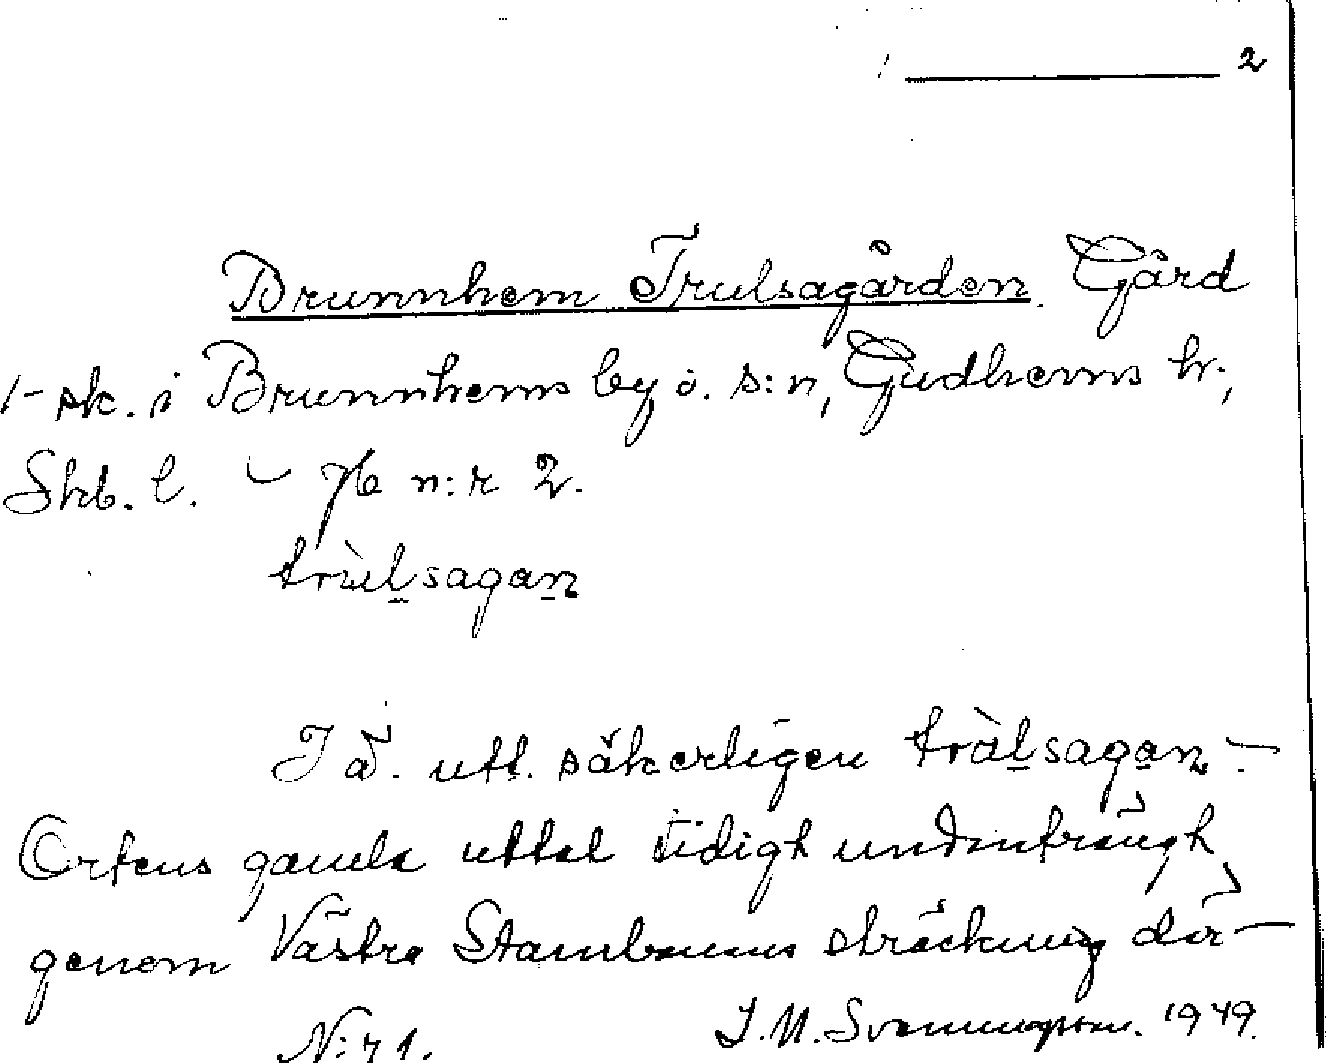 2
Brunnhem Trulsagården. Gård
1-sk. i Brunnhems by o. s:n, Gudhems hr,
Skb. l. – Jb n:r 2.
trùlsagan
I ä. utt. säkerligen tràlsagan. –
Ortens gamla uttal tidigt undanträngt
genom Västra Stambanans sträckning där –
N:r 1. I. M. Svenningsson. 1949.